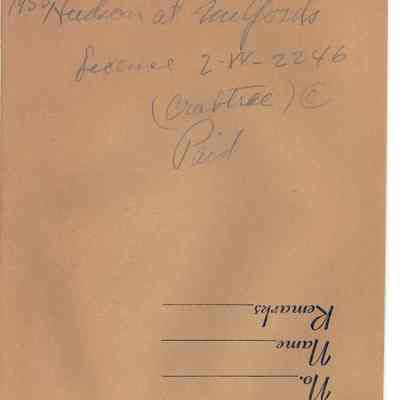 1950 Hudson at Mulfords
License 2-W-2246
(Crabtree) ©
Paid
Remarks
Name
No.